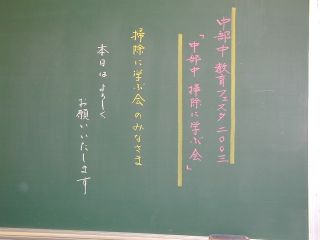 中部中 教育フェスタ二〇〇三
「中部中 掃除に学ぶ会」
掃除に学ぶ会のみなさま
本日はよろしく
お願いいたします